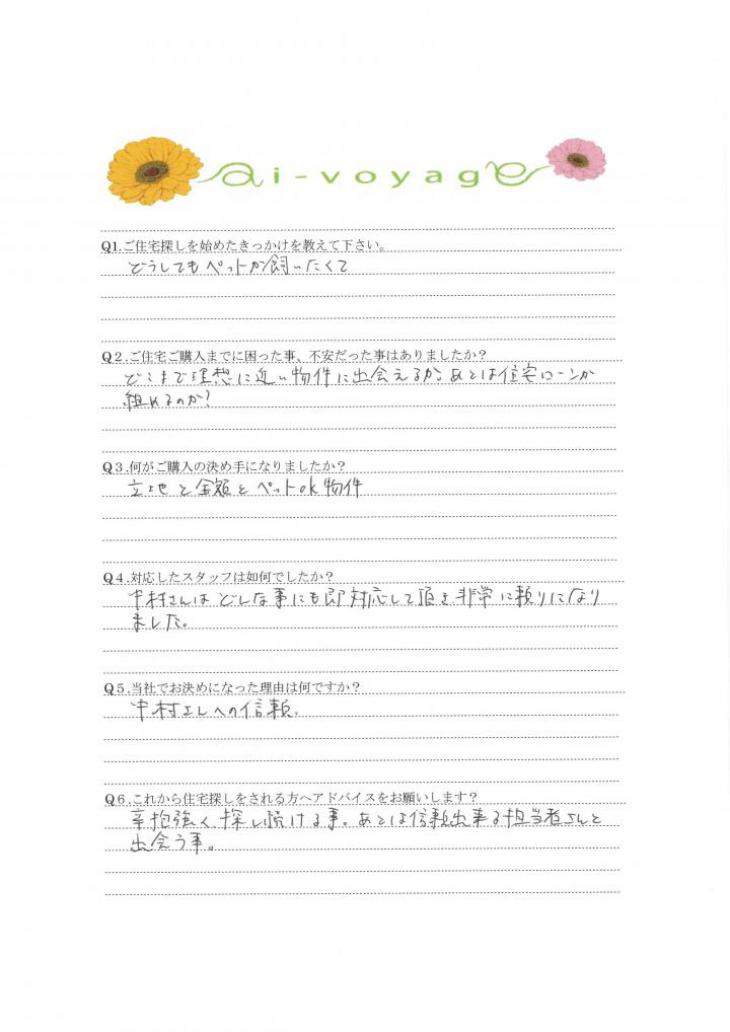 ai-voyage
Q1.ご住宅探しを始めたきっかけを教えて下さい。
どうしてもペットが飼いたくて
Q2.ご住宅ご購入までに困った事、不安だった事はありましたか?
どこまで理想に近い物件に出会えるか。あとは住宅ローンが
組めるのか?
Q3.何がご購入の決め手になりましたか?
立地と金額とペットok物件
Q4.対応したスタッフは如何でしたか?
中村さんはどんな事にも即対応して頂き非常に頼りになり
ました。
Q5.当社でお決めになった理由は何ですか?
中村さんへの信頼。
Q6.これから住宅探しをされる方へアドバイスをお願いします?
辛抱強く、探し続ける事。あとは信頼出来る担当者さんと
出会う事。